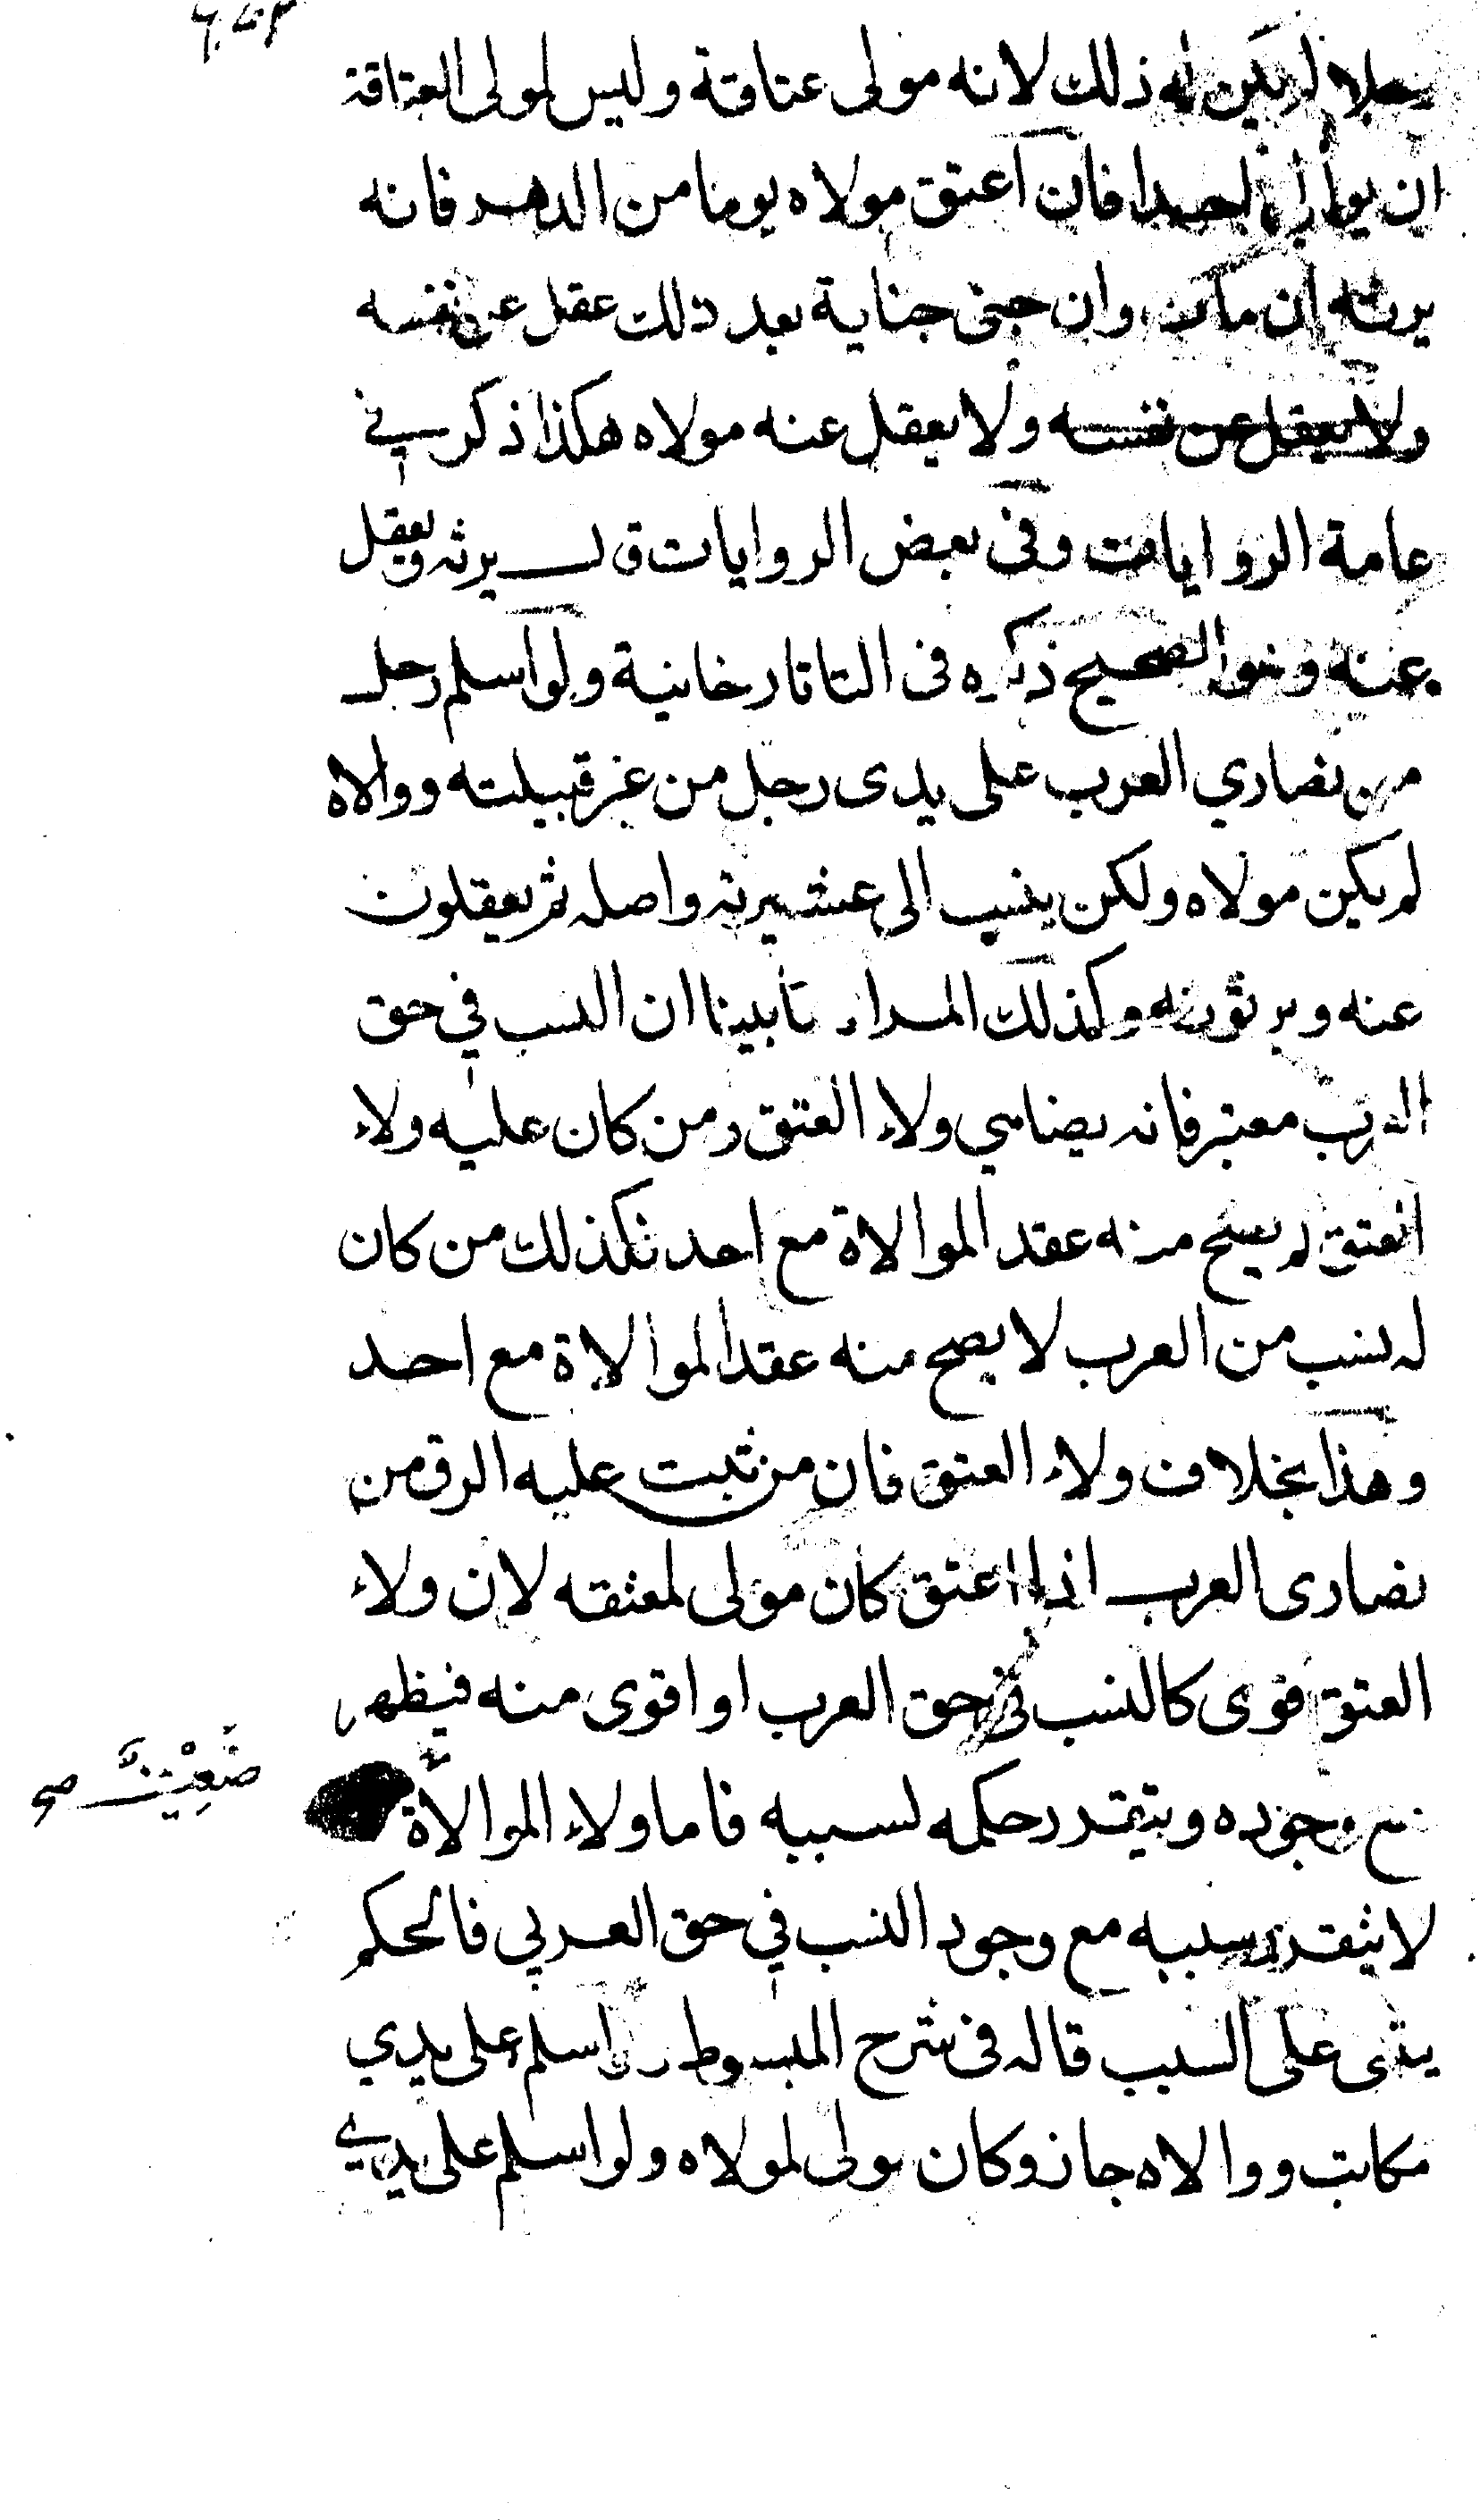 رجلا لم يكن له ذلك لانه مولى عتاقة وليس لمولى العتاقة
ان يوالى احدا فان اعتق مولاه يوما من الدهر فانه
يرثه ان مات وان جنى جناية بعد ذلك عقل عن نفسه
ولا يعقل عن نفسه ولا يعقل عنه مولاه هكذا ذكر في
عامة الروايات وفى بعض الروايات قال يرثه ويعقل
عنه وهو الصحيح ذكره فى التاتارخانية ولو اسلم رجل
من نصارى العرب على يدى رجل من غير قبيلته ووالاه
لم يكن مولاه ولكن ينسب الى عشيرته واصله ثم يعقلون
عنه ويرثونه وكذلك المراة بينا ان النسب في حق
العرب معتبر فانه يضاهي ولاء العتق ومن كان عليه ولاء
العتق لم يصح منه عقد الموالاة مع احد فكذلك من كان
له نسب من العرب لا يصح منه عقد الموالاة مع احد
وهذا بخلاف ولاء العتق فان من ثبت عليه الرق من
نصارى العرب اذا اعتق كان مولى لمعتقه لان ولاء
العتق قوى كالنسب في حق العرب او اقوى منه فيظهر
مع وجوده ويتقرر حكمه لسببه فاما ولاء الموالاة
ضَعِيْفٌ صح
لا يتقرر سببه مع وجود النسب في حق العربي فالحكم
يبنى على السبب قاله فى شرح المبسوط اسلم على يدي
مكاتب ووالاه جاز وكان مولى لمولاه ولو اسلم على يدي